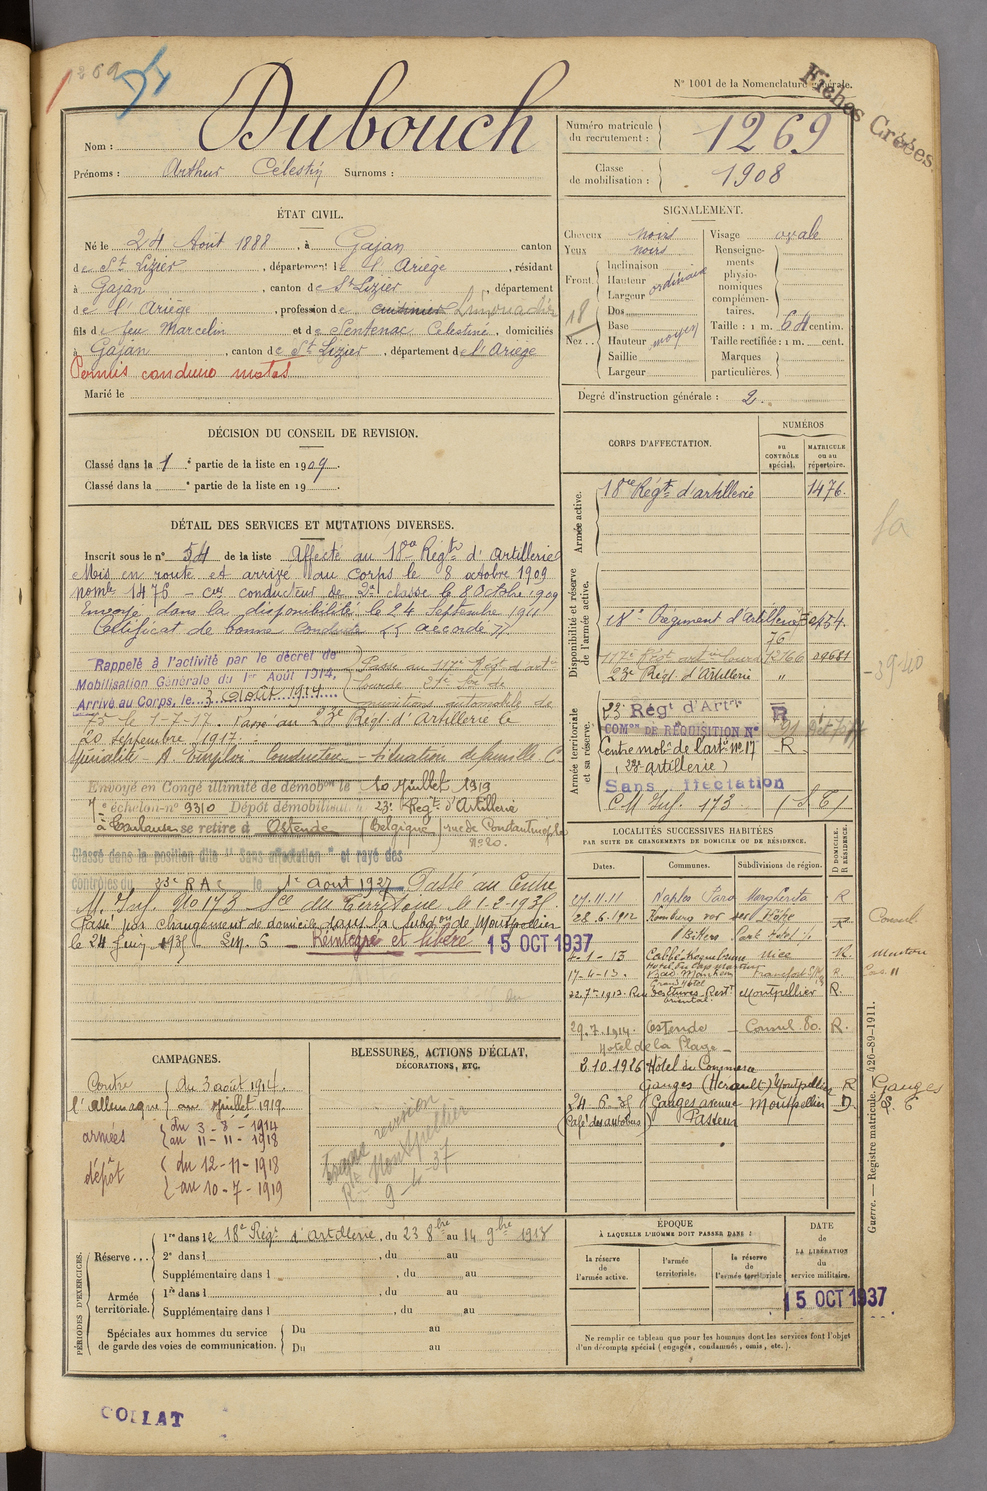 1269
N° 1001 de la Nomenclature générale.
Fiches Créées
Nom : Dubouch
Prénoms : Arthur Célestin Surnoms :
Numéro matricule du recrutement : 1269
Classe de mobilisation : 1908
ÉTAT CIVIL.
Né le 24 Août 1888, à Gajan canton
de St Lizier, département de l'Ariège, résidant
à Gajan, canton de St Lizier, département
de l'Ariège, profession de cuisinier Limonadier
fils de feu Marcelin et de Sentenac Célestine, domiciliés
à Gajan, canton de St Lizier, département de l'Ariège
Permis conduire motos
Marié le
SIGNALEMENT.
Cheveux noirs
Yeux noirs
Front
Inclinaison
Hauteur ordinaire
Largeur
18
Nez
Dos
Base
Hauteur moyen
Saillie
Largeur
Visage ovale
Renseignements physionomiques complémentaires.
Taille : 1 m. 64 centim.
Taille rectifiée : 1 m. cent.
Marques particulières.
Degré d'instruction générale : 2.
DÉCISION DU CONSEIL DE REVISION.
Classé dans la 1e partie de la liste en 1909.
Classé dans la e partie de la liste en 19
DÉTAIL DES SERVICES ET MUTATIONS DIVERSES.
Inscrit sous le n° 54 de la liste Affecté au 18e Régt d'Artillerie
Mis en route et arrivé au corps le 8 octobre 1909
nomle 1476 – cer conducteur de 2e classe le 8 octobre 1909
Envoyé dans la disponibilité le 24 Septembre 1911
Certificat de bonne Conduite "accordé".
Rappelé à l'activité par le décret de
Mobilisation Générale du 1er Août 1914,
Arrivé au Corps, le 3 Août 1914
Passé au 117e Régt d'artie
lourde
munitions automobile de
75 le 1-7-17. Passé au 23e Régt d'Artillerie le
20 septembre 1917.
Spécialité – A. Emploi Conducteur – Situation de famille C
Envoyé en Congé illimité de démobon le 10 juillet 1919
7e échelon n° 9310 Dépôt démobilisateur 23e Régt d'Artillerie
à Toulouse se retire à Ostende (Belgique) rue de Constantinople
N° 20.
Classé dans la position dite "Sans affectation" et rayé des
contrôles du 23e RAC le 1er Aout 1927 Passé au Centre
M. Inf. No 173 le 1-2-1935
Passé par changement de domicile dans la subdon de Montpellier
le 24 juin 1935
Réintégré et libéré 15 OCT 1937
CORPS D'AFFECTATION.
NUMÉROS
au CONTRÔLE spécial.
MATRICULE ou au répertoire.
Armée active.
18e Régt d'artillerie 1476.
Disponibilité et réserve de l'armée active.
18e Régiment d'Artillerie
117e Régt artie lourde
23e Régt d'Artillerie "
Armée territoriale et sa réserve.
23e Régt d'Artie R
COMon DE RÉQUISITION N°
Centre mobon de l'artie n° 17 – R –
(23e artillerie)
Sans affectation
CM Inf. 173
39-40
LOCALITÉS SUCCESSIVES HABITÉES
PAR SUITE DE CHANGEMENTS DE DOMICILE OU DE RÉSIDENCE.
Dates. Communes. Subdivisions de région. D DOMICILE. R RÉSIDENCE.
27.11.11 Naples Margherita R
28.6.1912 Homburg vor der Höhe R
4-1-13 Nice R.
17-4-13. R.
Grand Hôtel
Montpellier R.
29.7.1914 Ostende – Consul Bo. R.
Hotel de la Plage –
2.10.1926 Hôtel du Commerce
Ganges (Hérault) Montpellier R
24-6-35 Ganges avenue Montpellier D.
(Café des autobus) Pasteur
Consul
Menton
Ganges
CAMPAGNES.
Contre l'allemagne du 3 août 1914. au juillet 1919.
armées du 3-8-1914 au 11-11-1918
dépôt du 12-11-1918 au 10-7-1919
BLESSURES, ACTIONS D'ÉCLAT,
DÉCORATIONS, ETC.
Montpellier
PÉRIODES D'EXERCICES.
Réserve 1re dans le 18e Régt d'Artillerie, du 23 8bre au 14 9bre 1913
2e dans l , du au
Supplémentaire dans l , du au
Armée territoriale. 1re dans l , du au
Supplémentaire dans l , du au
Spéciales aux hommes du service de garde des voies de communication. Du au
Du au
ÉPOQUE
À LAQUELLE L'HOMME DOIT PASSER DANS :
la réserve de l'armée active.
l'armée territoriale.
la réserve de l'armée territoriale
DATE DE LA LIBÉRATION du service militaire.
15 OCT 1937
Ne remplir ce tableau que pour les hommes dont les services font l'objet
d'un décompte spécial (engagés, condamnés, omis, etc.).
Guerre. — Registre matricule. 426-89-1911.
COLLAT